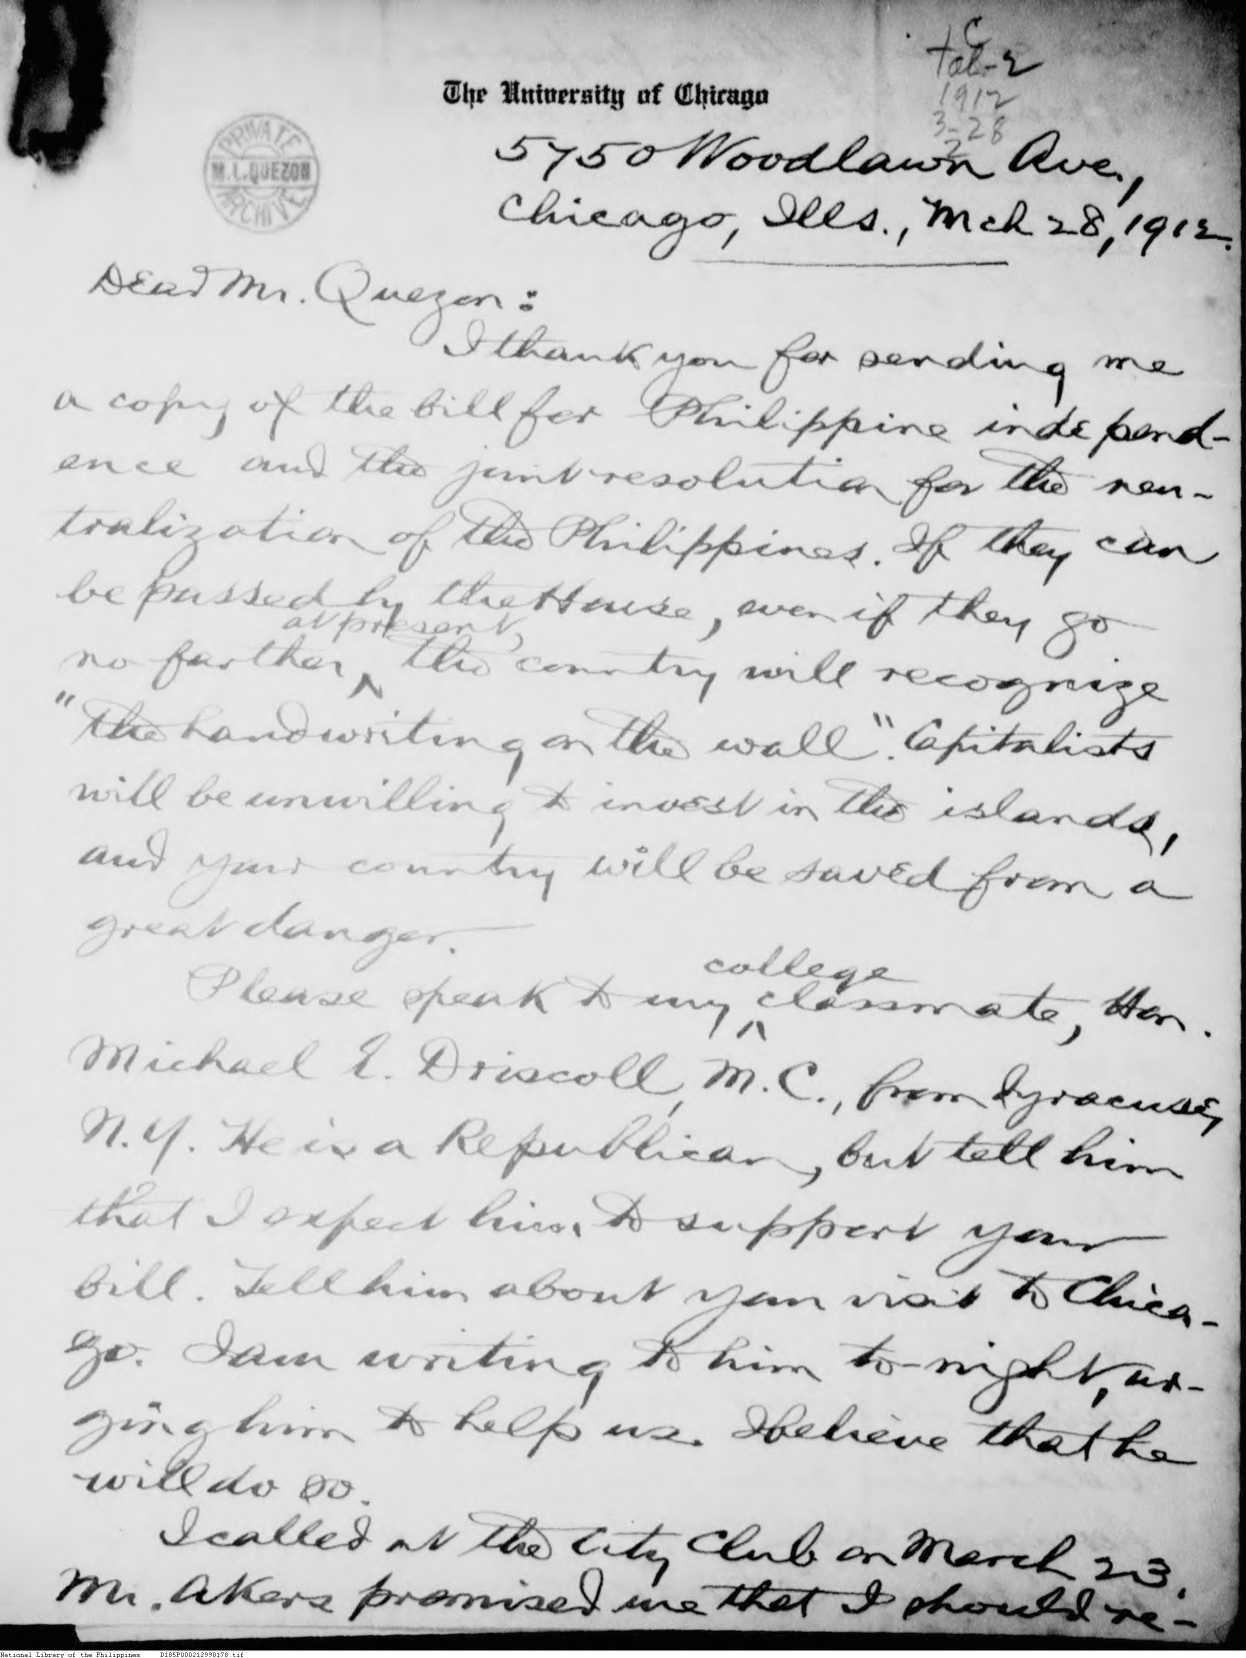 c
1912
3-28
2
The University of Chicago
PRIVATE
M.L.QUEZON
ARCHIVE
5750 Woodlawn Ave.,
Chicago, Ills., Mch 28, 1912.
Dear Mr. Quezon:
I thank you for sending me
a copy of the bill for Philippine independ-
ence and the joint resolution for the neu-
tralization of the Philippines. If they can
be passed by the House, even if they go
at present,
no farther, ^ the country will recognize
"the handwriting on the wall". Capitalists
will be unwilling to invest in the islands,
and your country will be saved from a
great danger.
college
Please speak to my ^ classmate, Hon.
Michael E. Driscoll, M.C., from Syracuse,
N.Y. He is a Republican, but tell him
that I expect him to support your
bill. Tell him about your visit to Chica-
go. I am writing to him to-night, ur-
ging him to help us. I believe that he
will do so.
I called at the City Club on March 23.
Mr. Akers promised me that I should re-
National Library of the Philippines D185P000212990178.tif